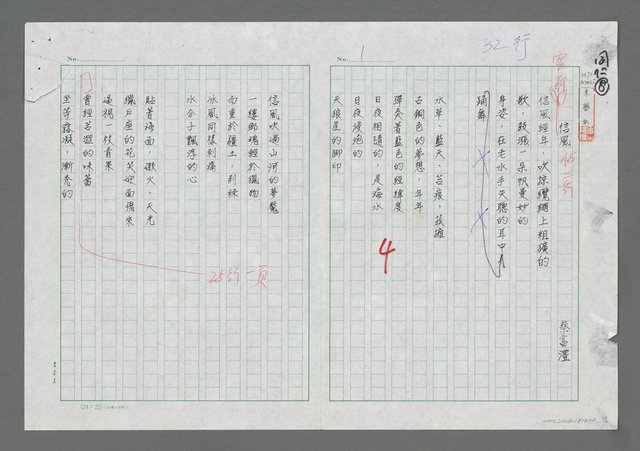 32行
1
No.
信風
蔡富澧
信風經年，吹掠纜繩上粗獷的
歌，鼓漲一朵帆曼妙的
身姿，在老水手失聰的耳中
踊舞
水草、藍天、苔痕，
古銅色的夢想，年年
彈奏著藍色的經緯度
日夜相隨的，是海水
日夜浸泡的
天狼星的腳印
4
No.
信風吹過山河的夢魘
一縷鄉魂輕於獵物
而重於疆土，
冰風同樣刺痛
水分子飄浮的心
貼著海面，漁火、天光
獵戶座的花笑迎面飄來
逼視一枚青果
曾經苦澀的味蕾
坐等露凝，漸秀的
25行一頁
(24×25)